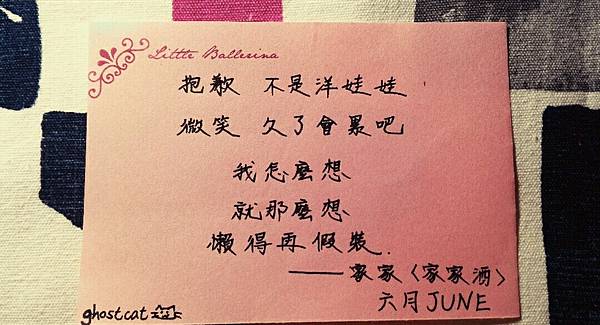 Little Ballerina
抱歉 不是洋娃娃
微笑 久了會累吧
我怎麼想
就那麼想
懶得再假裝.
——家家〈家家酒〉
六月JUNE
ghostcat